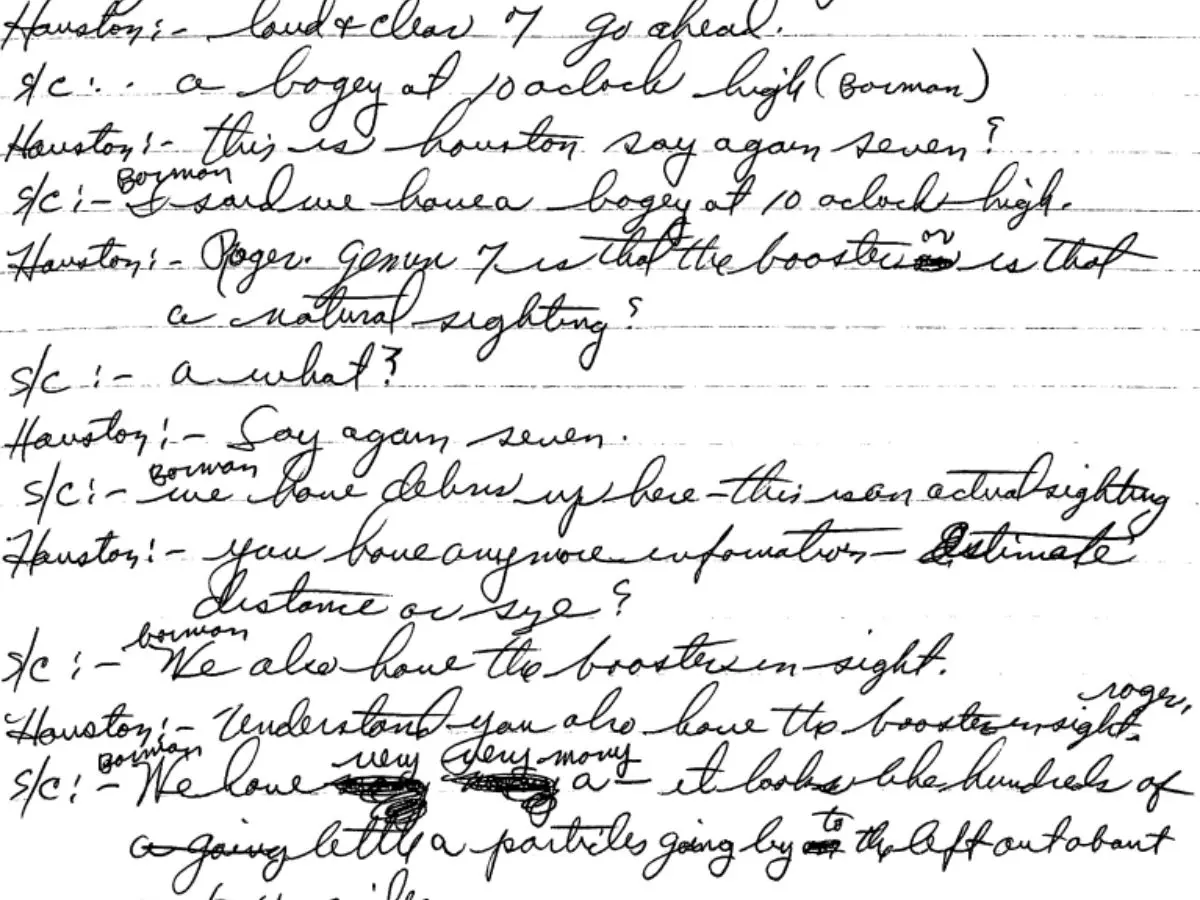 Houston:- loud & clear 7 go ahead.
s/c:.. a bogey at 10 aclock high (Borman)
Houston:- this is houston say again seven?
Borman
s/c:- I said we have a bogey at 10 aclock high.
or
Houston:- Roger. Gemini 7 is that the booster is that
a natural sighting?
s/c:- a what?
Houston:- Say again seven.
Borman
s/c:- we have debris up here - this is an actual sighting
Houston:- you have anymore information - Estimate
distance or size?
borman
s/c:- We also have the booster in sight.
roger,
Houston:- Understand you also have the booster in sight.
Borman very very many
s/c:- We have a - it looks like hundreds of
a going little a particles going by to the left out about